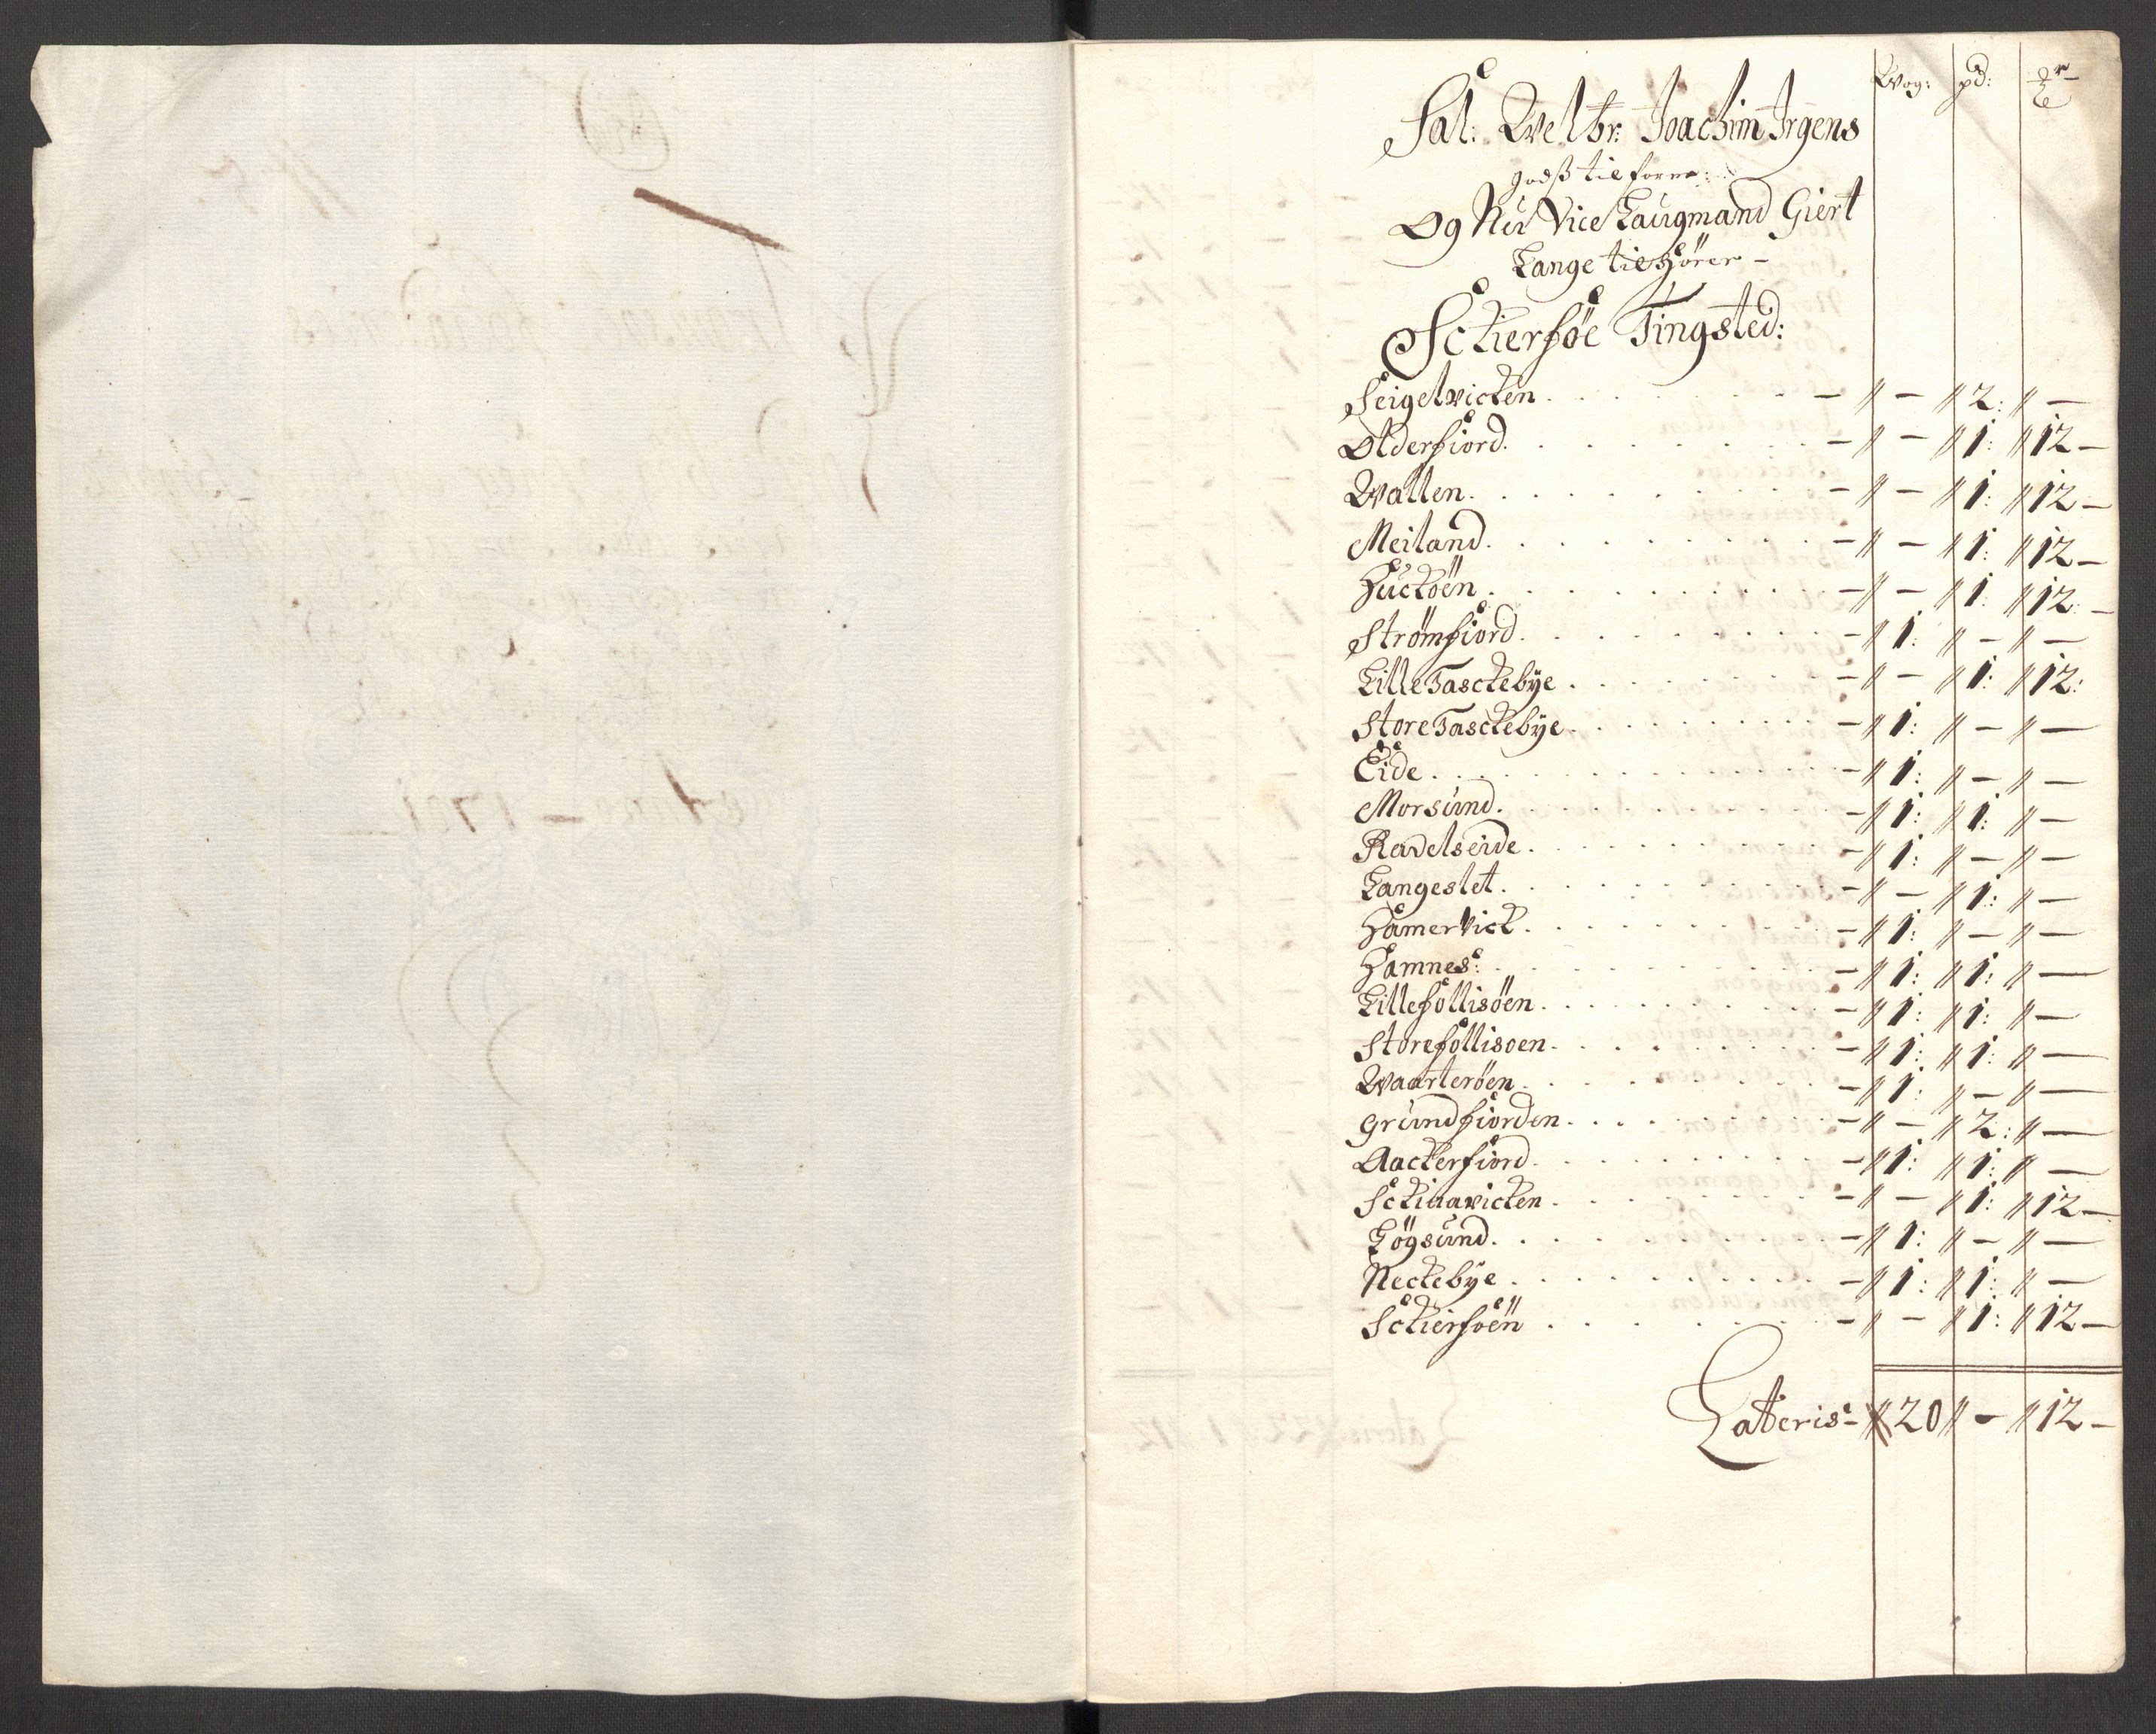 Wog: pd: 
Sal: Welbr: Joachim Irgens
godss tilforne:
Og Nu Vice Laugmand Giert
Lange tilhörer -
Sckiersöe Tingsted:
Seigelvicken . . . - // - // 2: // -
Olderfiord. . . . - // - // 1: // 12 -
Wallen. . . . - // - // 1: // 12 -
Meiland. . . . - // - // 1: // 12 -
Hucköen . . . - // - // 1: // 12: -
Strømfiord. . . . - // 1: // - // -
Lille Tasckebÿe . . . - // - // 1: // 12:
Store Tasckebÿe . . . - // 1: // - // -
Eide . . . - // 1: // - // -
Morsund. . . . - // 1: // 1: // -
Ravelseide . . . - // 1: // - // -
Langeslet. . . . - // - // 1: // -
Hamervick. . . . - // 1: // - // -
Hamnes: . . . - // 1: // 1: // -
Lillefollisöen. . . . - // 1: // 1: // -
Storefollisoen. . . . - // 1: // 1: // -
Waarteröen. . . . - // 1: // - // -
Grundfiorden. . . . - // - // 2: // -
Aackerfiord. . . . - // 1: // 1: // -
Sckiaavicken. . . . - // - // 1: // 12 -
Lögsund. . . . - // 1: // - // -
Neckebÿe . . . - // 1: // 1: // -
Sckiersöen . . . - // - // 1: // 12 -
Lateris - // 20 // - // 12 -